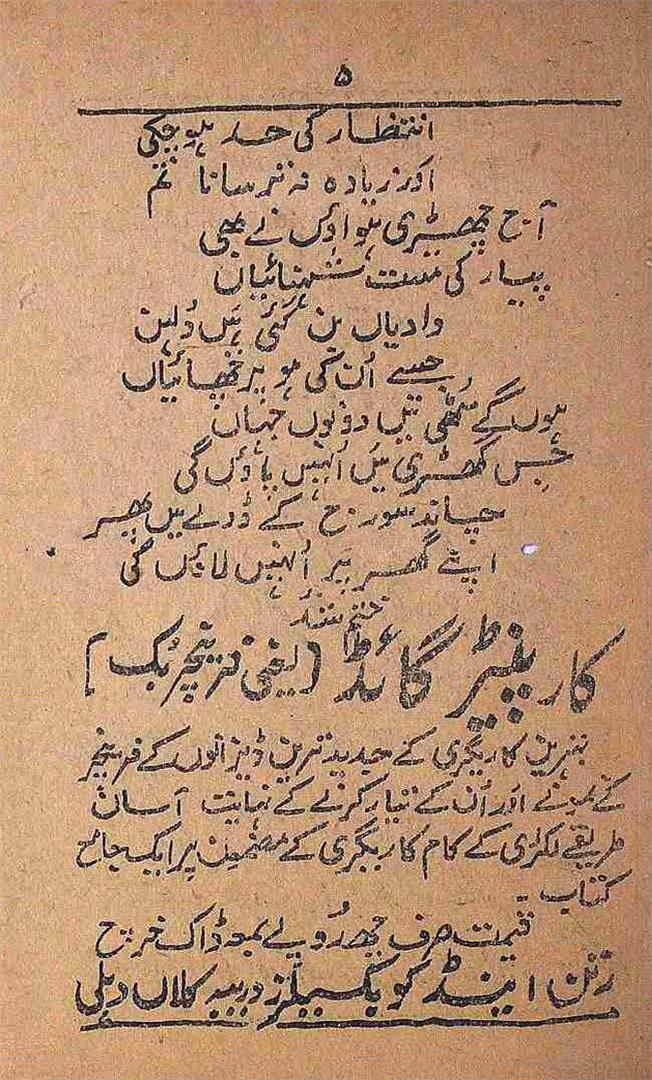 ۵
انتظار کی حد ہو چکی
اور زیادہ نہ ترسانا تم
آج چھیڑی ہواؤں نے بھی
پیار کی مست شہنائیاں
وادیاں بن گئی ہیں دُلہن
جیسے اُن کی ہو پرچھائیاں
ہوں گے مُٹھی میں دونوں جہاں
جس گھڑی میں اُنہیں پاؤں گی
چاند سورج کے ڈولے میں پھر
اپنے گھر پر اُنہیں لاؤں گی
ختم شد
کارپنیٹر گائڈ (یعنی فرنیچر بک)
بہترین کاریگری کے جدید ترین ڈیزائنوں کے فرنیچر
کے نمونے اور اُن کے تیار کرنے کے نہایت آسان
طریقے لکڑی کے کام کاریگری کے مضمون پر ایک جامع
کتاب -
قیمت صرف چھ رُوپے بمعہ ڈاک خرچ
رتن اینڈ کو بکسیلرز دریبہ کلاں دہلی